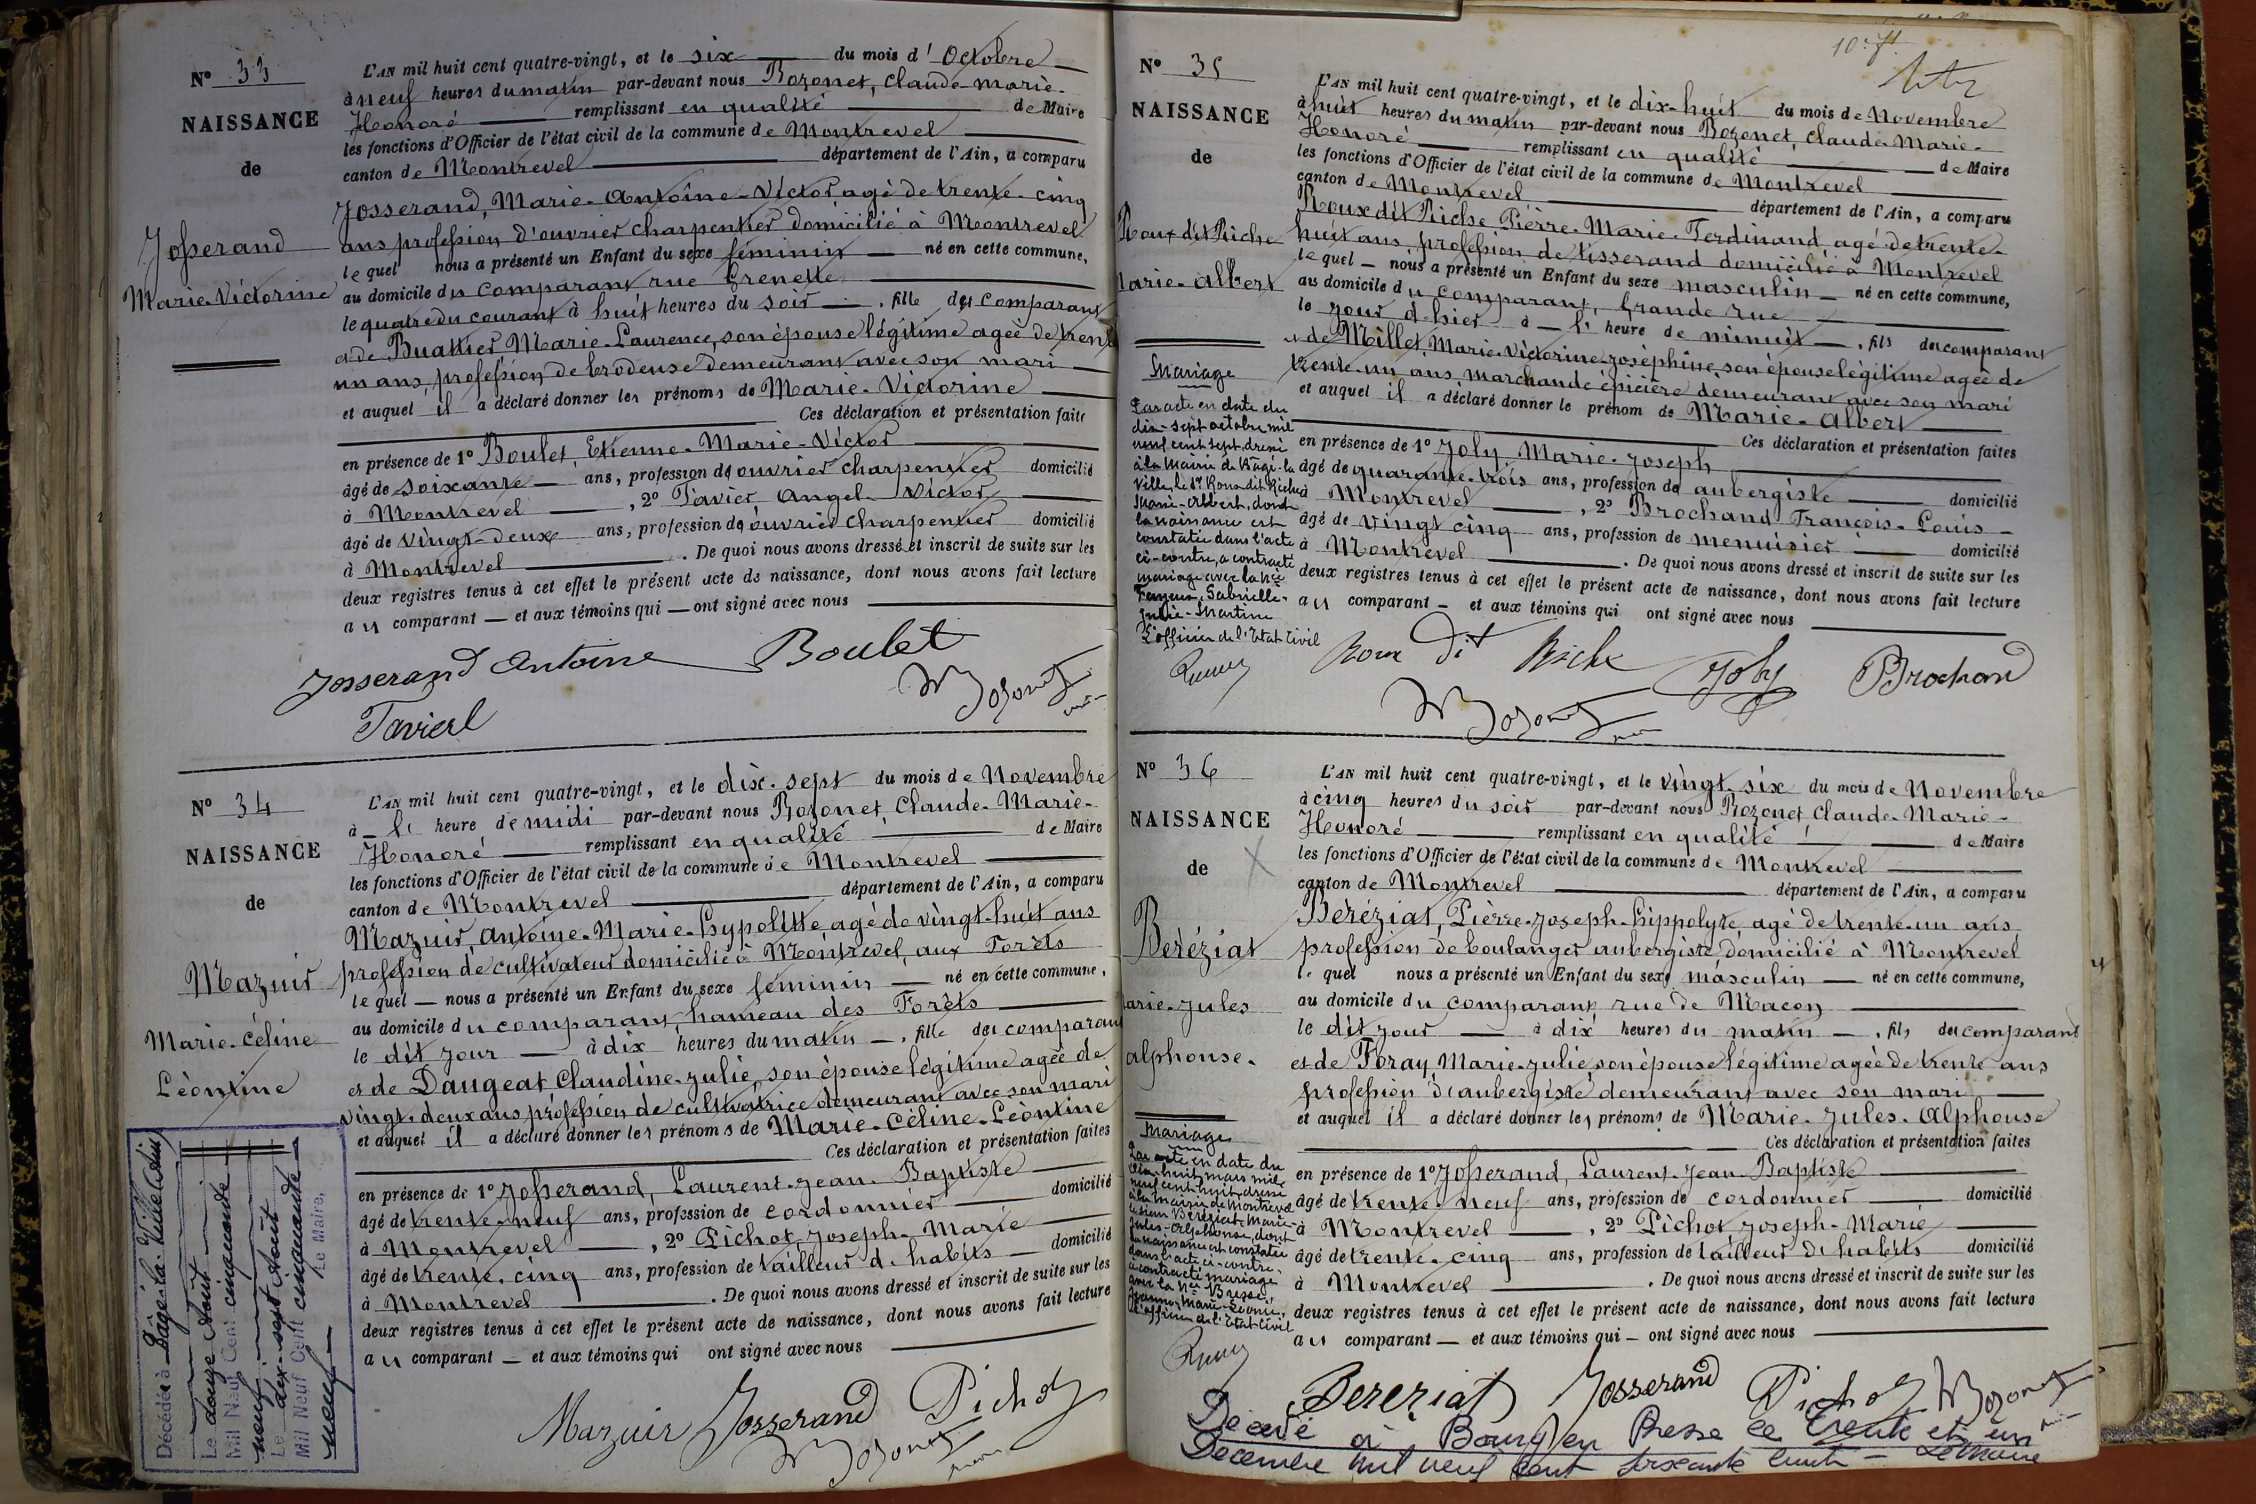 N° 33
NAISSANCE
de
Josserand
Marie-Victorine
L'AN mil huit cent quatre-vingt, et le six du mois d' Octobre
à neuf heures du matin par-devant nous Bozonet, Claude-Marie-
Honoré remplissant en qualité de Maire
les fonctions d'Officier de l'état civil de la commune de Montrevel
canton de Montrevel département de l'Ain, a comparu
Josserand, Marie-Antoine-Victor agé de trente-cinq
ans profession d'ouvrier charpentier domicilié à Montrevel
le quel nous a présenté un Enfant du sexe féminin né en cette commune,
au domicile du comparant rue Grenette
le quatre du courant à huit heures du soir, fille du comparant
et de Buattier Marie-Laurence, son épouse légitime agée de trente
un ans, profession de brodeuse demeurant avec son mari
et auquel il a déclaré donner les prénoms de Marie-Victorine
Ces déclaration et présentation faites
en présence de 1° Boulet, Etienne-Marie-Victor
âgé de soixante ans, profession d'ouvrier charpentier domicilié
à Montrevel, 2° Tavier, Angel-Victor
âgé de vingt-deux ans, profession d'ouvrier charpentier domicilié
à Montrevel. De quoi nous avons dressé et inscrit de suite sur les
deux registres tenus à cet effet le présent acte de naissance, dont nous avons fait lecture
au comparant et aux témoins qui ont signé avec nous
Josserand Antoine Boulet
Bozonet
Tavierl
N° 34
NAISSANCE
de
Mazuir
Marie-Céline
Léontine
L'AN mil huit cent quatre-vingt, et le dix-sept du mois de Novembre
à l' heure de midi par-devant nous Bozonet, Claude-Marie-
Honoré remplissant en qualité de Maire
les fonctions d'Officier de l'état civil de la commune de Montrevel
canton de Montrevel département de l'Ain, a comparu
Mazuir, Antoine-Marie-Hypolitte, agé de vingt-huit ans
profession de cultivateur domicilié à Montrevel, aux Forêts
le quel nous a présenté un Enfant du sexe féminin né en cette commune,
au domicile du comparant, hameau des Forêts
le dit jour à dix heures du matin, fille du comparant
et de Daugeat Claudine-Julie, son épouse légitime agée de
vingt-deux ans profession de cultivatrice demeurant avec son mari
et auquel il a déclaré donner les prénoms de Marie-Céline-Léontine
Ces déclaration et présentation faites
en présence de 1° Josserand, Laurent-Jean-Baptiste
âgé de trente-neuf ans, profession de cordonnier domicilié
à Montrevel, 2° Pichot, Joseph-Marie
âgé de trente-cinq ans, profession de tailleur d'habits domicilié
à Montrevel. De quoi nous avons dressé et inscrit de suite sur les
deux registres tenus à cet effet le présent acte de naissance, dont nous avons fait lecture
au comparant et aux témoins qui ont signé avec nous
Mazuir Josserand Pichot
Bozonet
Décédée à Bâgé-la-Ville (Ain)
Le douze Août
Mil Neuf Cent cinquante
neuf
Le dix-sept Août
Mil Neuf Cent cinquante
neuf
Le Maire,
N° 35
NAISSANCE
de
Roux dit Riche
Marie-Albert
L'AN mil huit cent quatre-vingt, et le dix-huit du mois de Novembre
à huit heures du matin par-devant nous Bozonet, Claude-Marie-
Honoré remplissant en qualité de Maire
les fonctions d'Officier de l'état civil de la commune de Montrevel
canton de Montrevel département de l'Ain, a comparu
Roux dit Riche Pierre-Marie-Ferdinand, agé de trente-
huit ans, profession de tisserand domicilié à Montrevel
le quel nous a présenté un Enfant du sexe masculin né en cette commune,
au domicile du comparant, Grande rue
le jour d'hier à l' heure de minuit, fils du comparant
et de Millet, Marie-Victorine-Joséphine, son épouse légitime agée de
trente-un ans, marchande épicière demeurant avec son mari
et auquel il a déclaré donner le prénom de Marie-Albert
Ces déclaration et présentation faites
en présence de 1° Joly, Marie-Joseph
âgé de quarante-trois ans, profession de aubergiste domicilié
à Montrevel, 2° Brochand François-Louis
âgé de vingt cinq ans, profession de menuisier domicilié
à Montrevel. De quoi nous avons dressé et inscrit de suite sur les
deux registres tenus à cet effet le présent acte de naissance, dont nous avons fait lecture
au comparant et aux témoins qui ont signé avec nous
Roux dit Riche Joly Brochand
Bozonet
Mariage
Par acte en date du
dix-sept octobre mil
neuf cent sept, dressé
à la Mairie de Bâgé-la
Ville, le Sr Roux dit Riche
Marie-Albert, dont
la naissance est
constatée dans l'acte
ci-contre, a contracté
mariage avec la Née
Gabrielle-
Julie-Martine
L'officier de l'Etat Civil
N° 36
NAISSANCE
de
Béréziat
Marie-Jules
Alphonse.
L'AN mil huit cent quatre-vingt, et le vingt-six du mois de Novembre
à cinq heures du soir par-devant nous Bozonet, Claude-Marie-
Honoré remplissant en qualité de Maire
les fonctions d'Officier de l'état civil de la commune de Montrevel
canton de Montrevel département de l'Ain, a comparu
Béréziat, Pierre-Joseph-Hippolyte, agé de trente-un ans
profession de boulanger aubergiste, domicilié à Montrevel
le quel nous a présenté un Enfant du sexe masculin né en cette commune,
au domicile du comparant, rue de Macon
le dit jour à dix heures du matin, fils du comparant
et de Foray, Marie-Julie, son épouse légitime agée de trente ans
profession d'aubergiste demeurant avec son mari
et auquel il a déclaré donner les prénoms de Marie-Jules-Alphonse
Ces déclaration et présentation faites
en présence de 1° Josserand, Laurent-Jean-Baptiste
âgé de trente-neuf ans, profession de cordonnier domicilié
à Montrevel, 2° Pichot Joseph-Marie
âgé de trente-cinq ans, profession de tailleur d'habits domicilié
à Montrevel. De quoi nous avons dressé et inscrit de suite sur les
deux registres tenus à cet effet le présent acte de naissance, dont nous avons fait lecture
au comparant et aux témoins qui ont signé avec nous
Bereziat Josserand Pichot Bozonet
Mariage
Par acte en date du
dix-huit mars mil
neuf cent huit, dressé
à la mairie de Montrevel
le sieur Béréziat, Marie-
Jules-Alphonse, dont
la naissance est constatée
dans l'acte ci-contre,
a contracté mariage
avec la Née
Marie-Léonie,
L'officier de l'Etat Civil
Décédé à Bourg en Bresse le trente et un
Décembre mil neuf cent soixante huit - Le Maire